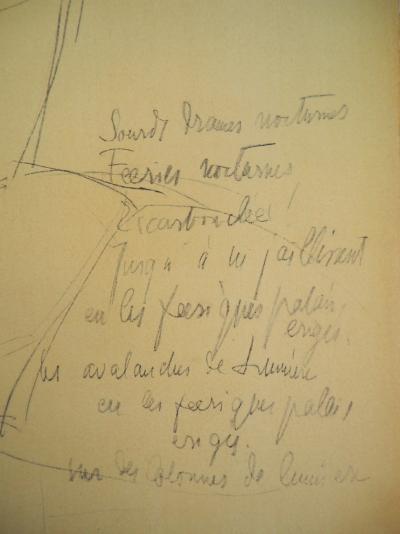 Sourds Drames nocturnes
Feeries nocturnes
Escarbouclées!
Jusqu'à en jaillirent
en les feeriques palais
eriges.
les avalanches de Lumière
en les feeriques palais
eriges.
sur des Colonnes de lumière